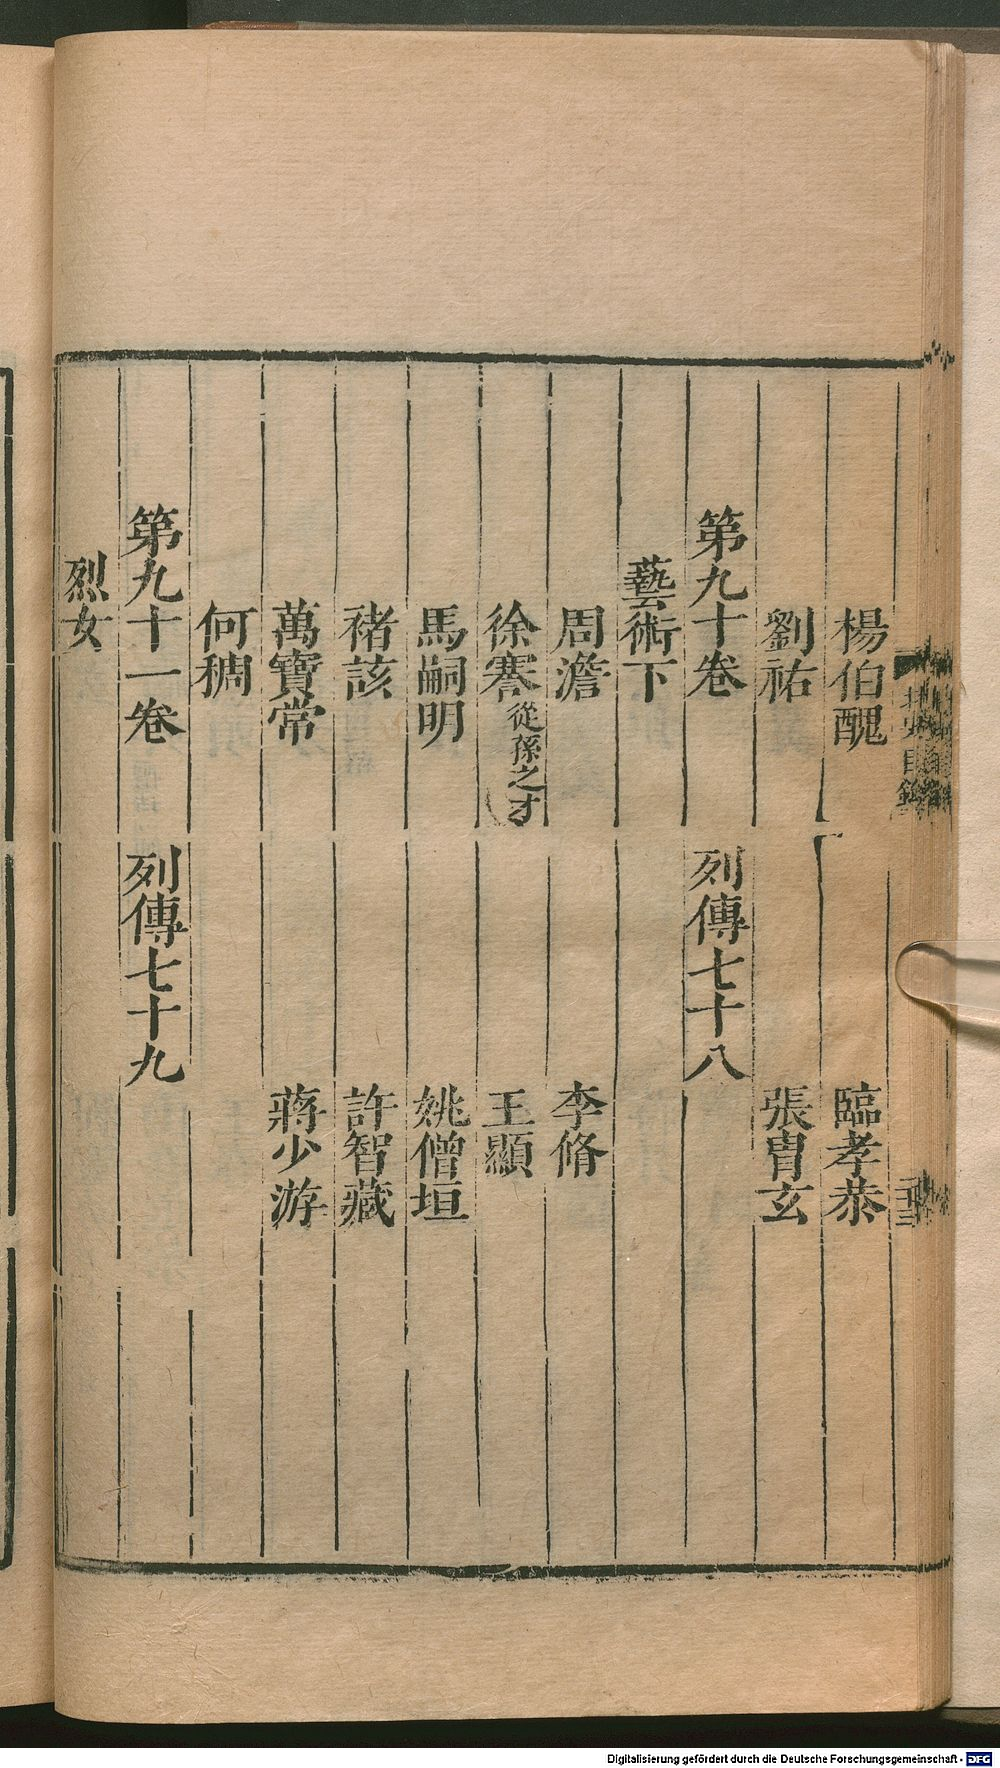 楊伯醜　臨孝恭
劉祐　張胄玄
第九十卷　列傳七十八
藝術下
周澹　李脩
徐謇從孫之才　王顯
馬嗣明　姚僧垣
褚該　許智藏
萬寶常　蔣少游
何稠
第九十一卷　列傳七十九
烈女
Digitalisierung gefördert durch die Deutsche Forschungsgemeinschaft - DFG